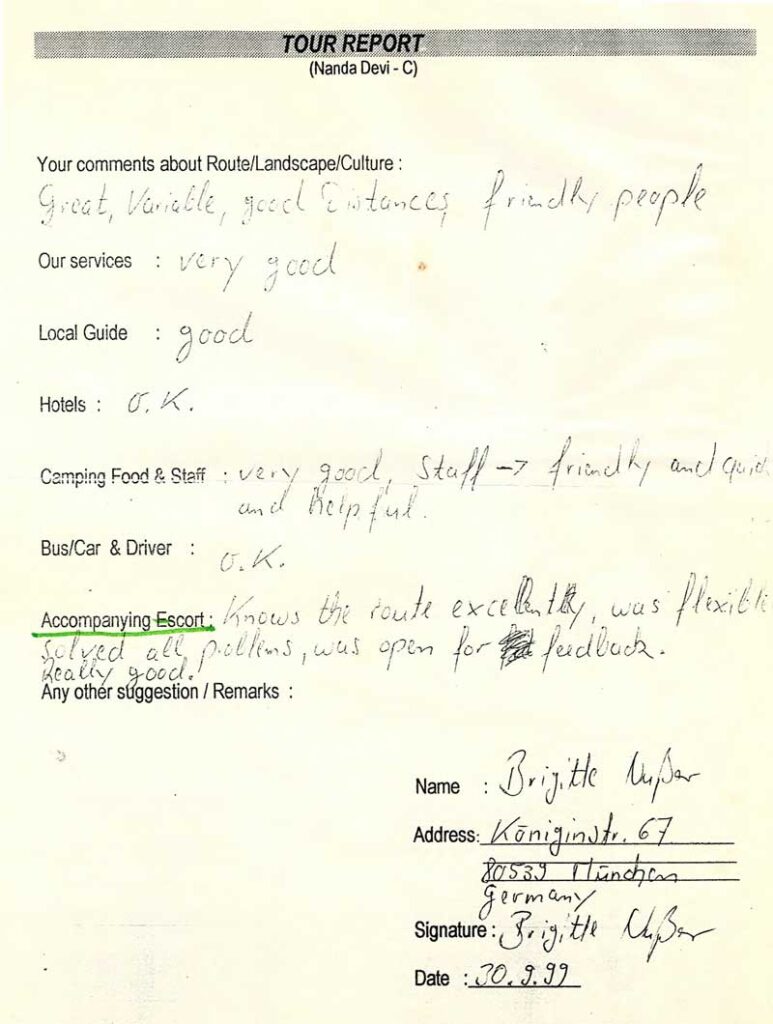 TOUR REPORT
(Nanda Devi - C)
Your comments about Route/Landscape/Culture :
Great, Variable, good Distances, friendly people
Our services : very good
Local Guide : good
Hotels : O.K.
Camping Food & Staff : very good, Staff → friendly and quick
and helpful.
Bus/Car & Driver : O.K.
Accompanying Escort : Knows the route excellently, was flexible
solved all problems, was open for feedback.
Really good.
Any other suggestion / Remarks :
Name : Brigitte Nußer
Address: Königinstr. 67
80539 München
Germany
Signature : Brigitte Nußer
Date : 30.9.99